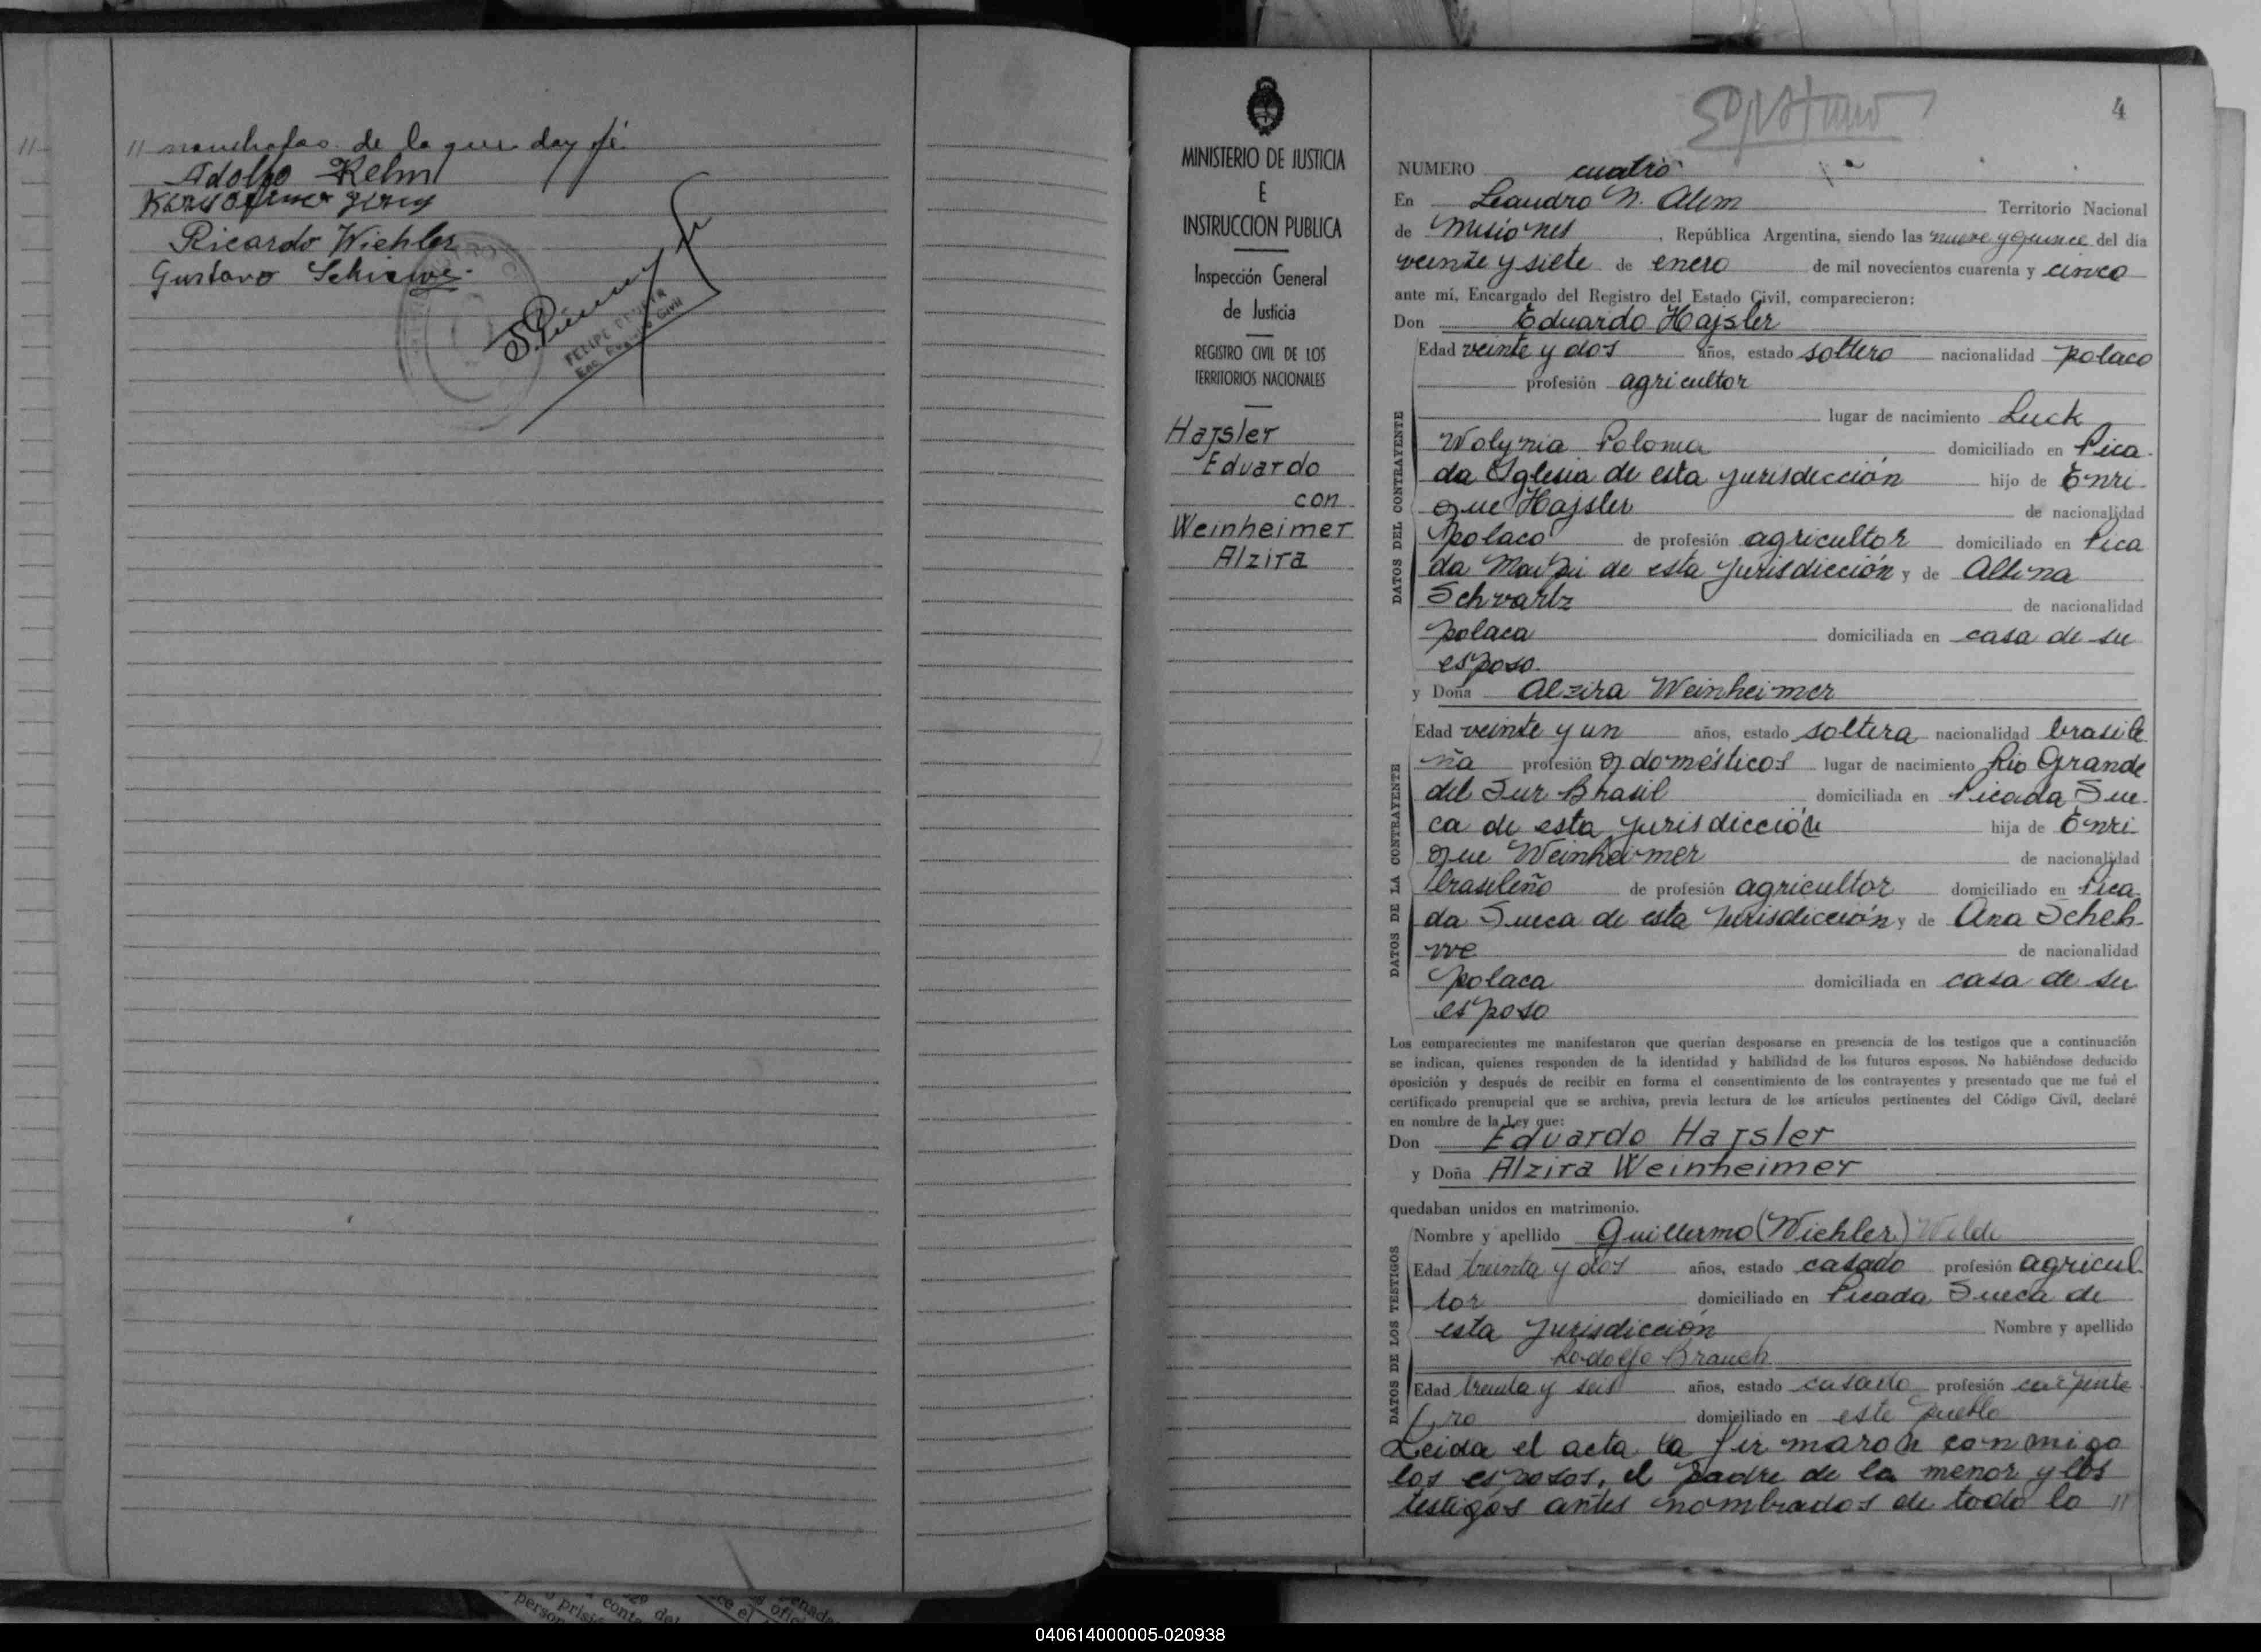 11 manchofas de lo que doy fé.
Adolfo Relm
Ricardo Wiehler
Gustavo Schiewe
FELIPE
Enc. Registro Civil
4
MINISTERIO DE JUSTICIA
E
INSTRUCCION PUBLICA
Inspección General
de Justicia
REGISTRO CIVIL DE LOS
TERRITORIOS NACIONALES
Hajsler
Eduardo
con
Weinheimer
Alzira
NUMERO cuatro
En Leandro N. Alem Territorio Nacional
de Misiones, República Argentina, siendo las nueve y quince del día
veinte y siete de enero de mil novecientos cuarenta y cinco
ante mí, Encargado del Registro del Estado Civil, comparecieron:
Don Eduardo Hajsler
DATOS DEL CONTRAYENTE
Edad veinte y dos años, estado soltero nacionalidad polaco
profesión agricultor
lugar de nacimiento Luck
Wolynia Polonia domiciliado en Pica-
da Iglesia de esta jurisdicción hijo de Enri-
que Hajsler de nacionalidad
polaco de profesión agricultor domiciliado en Pica
da de esta jurisdicción y de Albina
Schvartz de nacionalidad
polaca domiciliada en casa de su
esposo.
y Doña Alzira Weinheimer
DATOS DE LA CONTRAYENTE
Edad veinte y un años, estado soltera nacionalidad brasile
ña profesión q domésticos lugar de nacimiento Rio Grande
del Sur Brasil domiciliada en Picada Sue-
ca de esta jurisdicción hija de Enri
que Weinheimer de nacionalidad
brasileño de profesión agricultor domiciliado en Pica-
da Sueca de esta jurisdicción y de Ana Scheh-
we de nacionalidad
polaca domiciliada en casa de su
esposo
Los comparecientes me manifestaron que querían desposarse en presencia de los testigos que a continuación
se indican, quienes responden de la identidad y habilidad de los futuros esposos. No habiéndose deducido
oposición y después de recibir en forma el consentimiento de los contrayentes y presentado que me fué el
certificado prenupcial que se archiva, previa lectura de los artículos pertinentes del Código Civil, declaré
en nombre de la Ley que:
Don Eduardo Hajsler
y Doña Alzira Weinheimer
quedaban unidos en matrimonio.
DATOS DE LOS TESTIGOS
Nombre y apellido Guillermo (Wiehler) Wilde
Edad treinta y dos años, estado casado profesión agricul
tor domiciliado en Picada Sueca de
esta jurisdicción Nombre y apellido
Rodolfo Brauch
Edad treinta y seis años, estado casado profesión carpinte
ro domiciliado en este pueblo
Leida el acta la firmaron conmigo
los esposos, el padre de la menor y los
testigos antes nombrados de todo lo 11
040614000005-020938